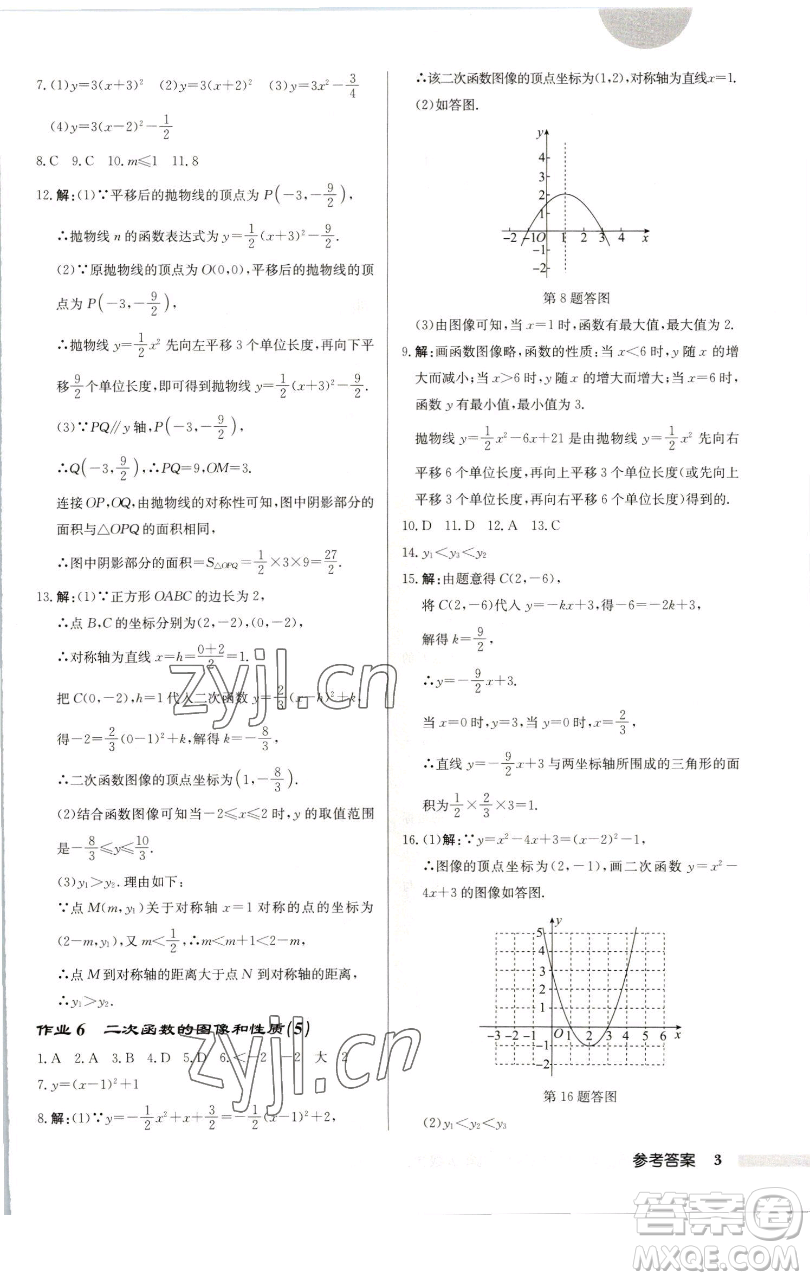 7. (1)y=3(x+3)² (2)y=3(x+2)² (3)y=3x²-3/4
(4)y=3(x-2)²-1/2
8. C 9. C 10. m≤1 11. 8
12. 解:(1)∵平移后的抛物线的顶点为 P(-3,-9/2),
∴抛物线 n 的函数表达式为 y=1/2(x+3)²-9/2.
(2)∵原抛物线的顶点为 O(0,0),平移后的抛物线的顶
点为 P(-3,-9/2),
∴抛物线 y=1/2x² 先向左平移 3 个单位长度,再向下平
移9/2个单位长度,即可得到抛物线 y=1/2(x+3)²-9/2.
(3)∵PQ∥y 轴,P(-3,-9/2),
∴Q(-3,9/2),∴PQ=9,OM=3.
连接 OP,OQ,由抛物线的对称性可知,图中阴影部分的
面积与△OPQ 的面积相同,
∴图中阴影部分的面积=S△OPQ=1/2×3×9=27/2.
13. 解:(1)∵正方形 OABC 的边长为 2,
∴点 B,C 的坐标分别为(2,-2),(0,-2),
∴对称轴为直线 x=h=0+2/2=1.
把 C(0,-2),h=1代入二次函数 y=2/3(x-h)²+k,
得-2=2/3(0-1)²+k,解得 k=-8/3,
∴二次函数图像的顶点坐标为(1,-8/3).
(2)结合函数图像可知当-2≤x≤2 时,y 的取值范围
是-8/3≤y≤10/3.
(3)y₁>y₂. 理由如下:
∵点 M(m,y₁)关于对称轴 x=1 对称的点的坐标为
(2-m,y₁),又 m<1/2,∴m<1<2-m,
∴点 M 到对称轴的距离大于点 N 到对称轴的距离,
∴y₁>y₂.
作业 6 二次函数的图像和性质(5)
1. A 2. A 3. B 4. D 5. D 6. <-2 -2 大 2
7. y=(x-1)²+1
8. 解:(1)∵y=-1/2x²+x+3/2=-1/2(x-1)²+2,
∴该二次函数图像的顶点坐标为(1,2),对称轴为直线x=1.
(2)如答图.
y
4
3
2
1
-2 -1 O 1 2 3 4 x
-1
-2
第 8 题答图
(3)由图像可知,当 x=1 时,函数有最大值,最大值为 2.
9. 解:画函数图像略,函数的性质:当 x<6 时,y 随 x 的增
大而减小;当 x>6 时,y 随 x 的增大而增大;当 x=6 时,
函数 y 有最小值,最小值为 3.
抛物线 y=1/2x²-6x+21 是由抛物线 y=1/2x² 先向右
平移 6 个单位长度,再向上平移 3 个单位长度(或先向上
平移 3 个单位长度,再向右平移 6 个单位长度)得到的.
10. D 11. D 12. A 13. C
14. y₁<y₃<y₂
15. 解:由题意得 C(2,-6),
将 C(2,-6)代入 y=-kx+3,得-6=-2k+3,
解得 k=9/2,
∴y=-9/2x+3.
当 x=0 时,y=3,当 y=0 时,x=2/3,
∴直线 y=-9/2x+3 与两坐标轴所围成的三角形的面
积为1/2×2/3×3=1.
16. (1)解:∵y=x²-4x+3=(x-2)²-1,
∴图像的顶点坐标为(2,-1),画二次函数 y=x²-
4x+3 的图像如答图.
y
5
4
3
2
1
-3 -2 -1 O 1 2 3 4 5 6 x
-1
-2
第 16 题答图
(2)y₁<y₂<y₃
参考答案 3
zyjl.cn
zyjl.cn
答案圈
MXQE.COM